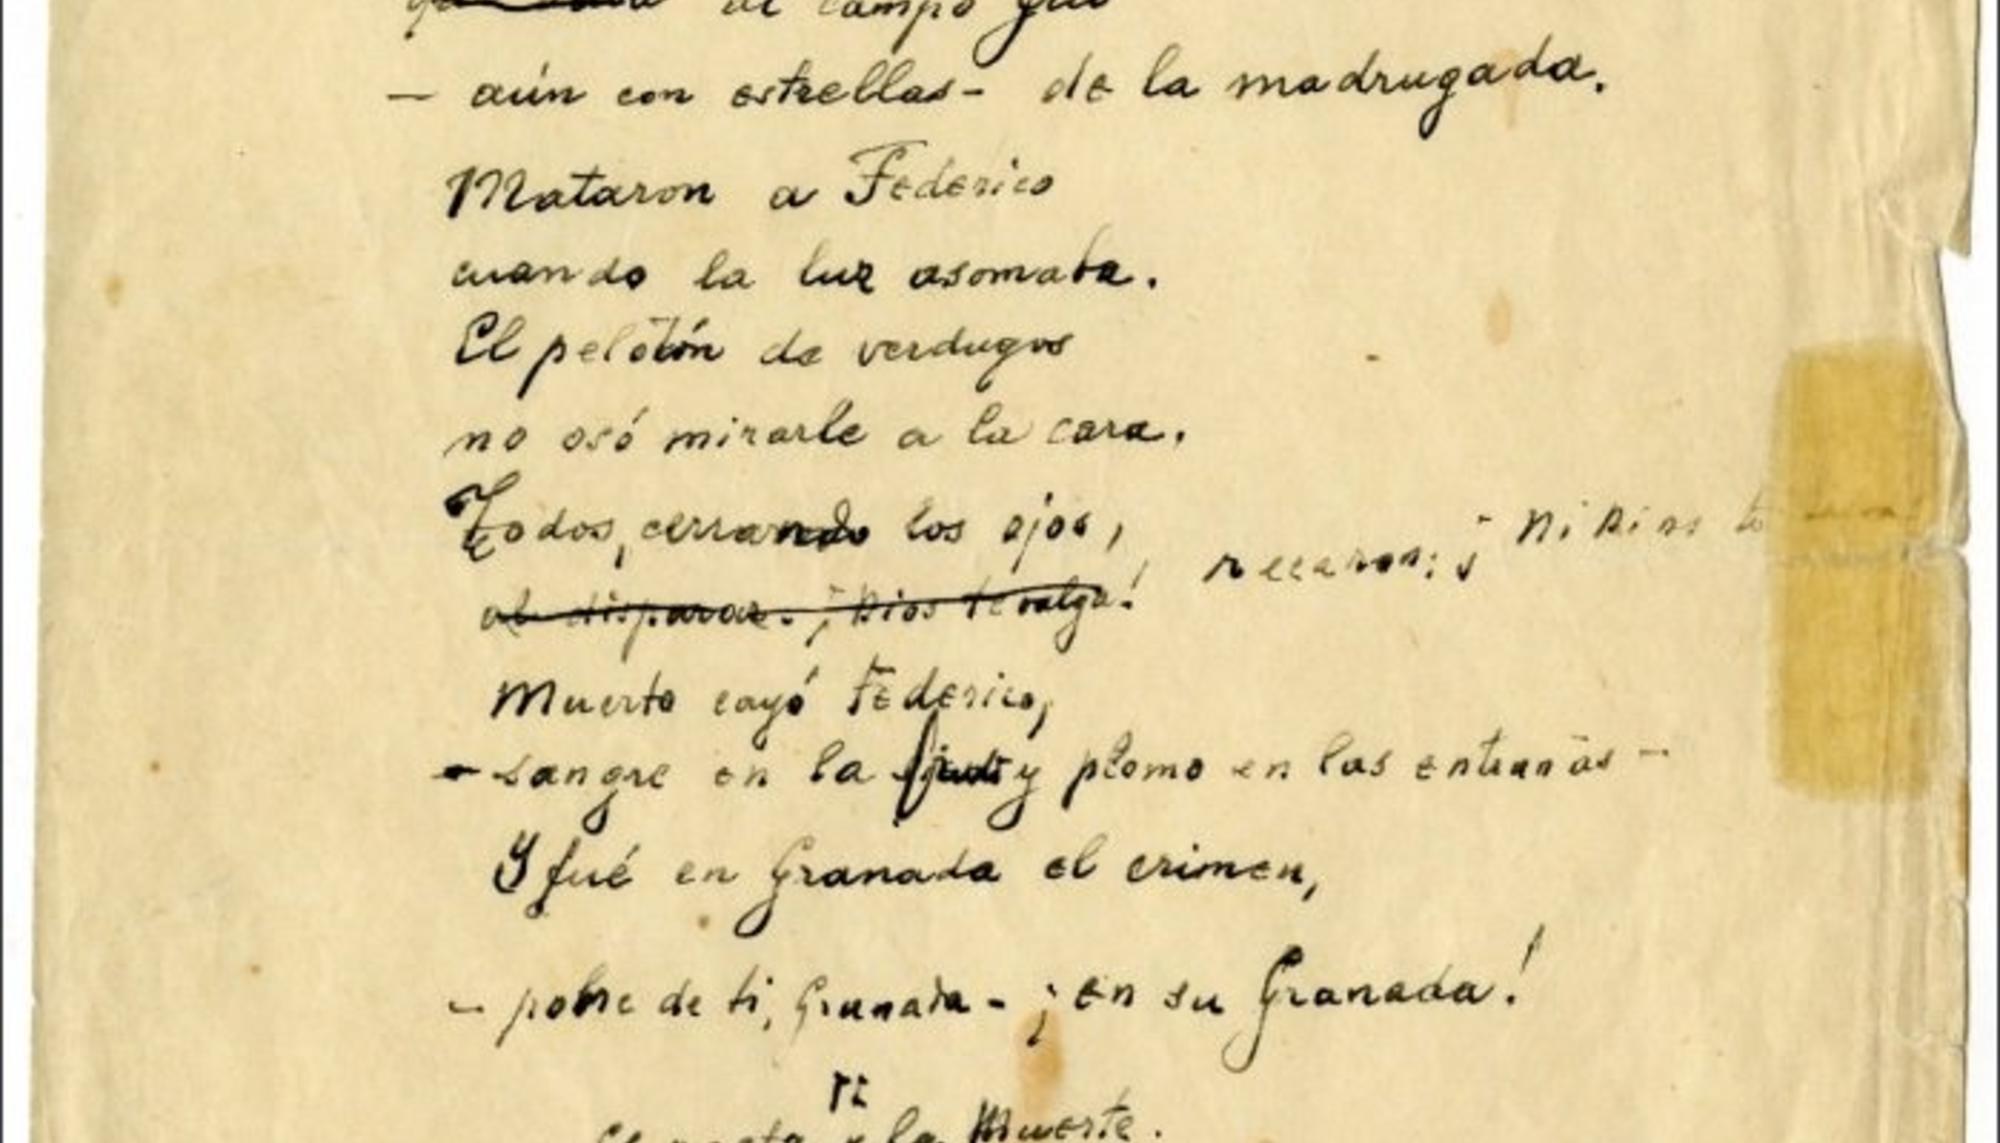 al campo frío
— aún con estrellas - de la madrugada.
Mataron a Federico
cuando la luz asomaba.
El pelotón de verdugos
no osó mirarle a la cara.
Todos, cerrando los ojos,
rezaron: ¡ ni Dios te
al disparar. ¡Dios te valga!
Muerto cayó Federico,
- sangre en la y plomo en las entrañas -
Y fué en Granada el crimen,
- pobre de ti, Granada - ¡en su Granada!
II
El poeta y la Muerte.